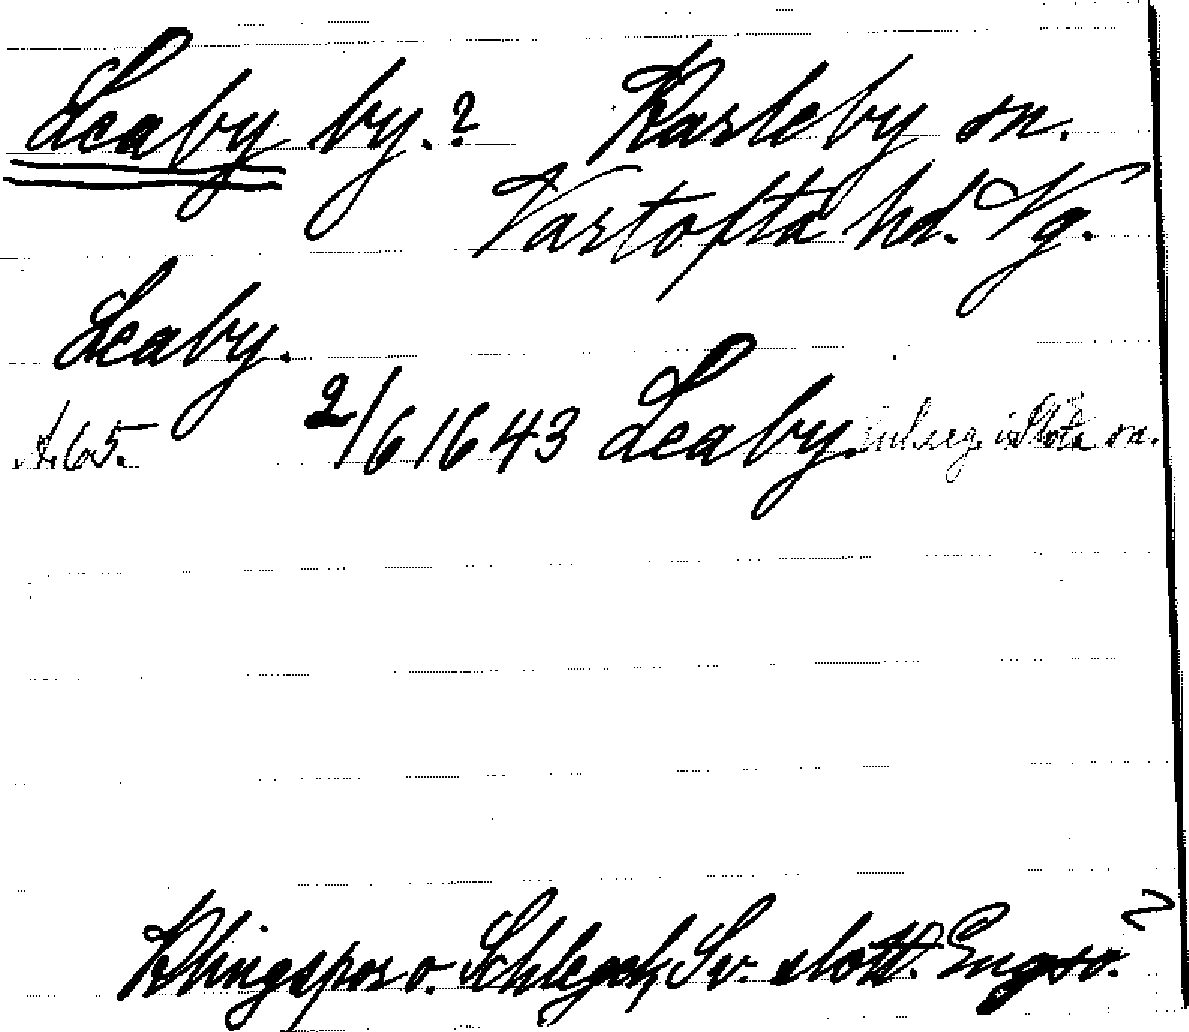 Leaby by.? Karleby sn.
Vartofta hd. Vg.
Leaby.
A.65. 2/6 1643 Leaby. i Slöta sn.
Klingspor o. Schlegel, Sv. slott. Engsö.